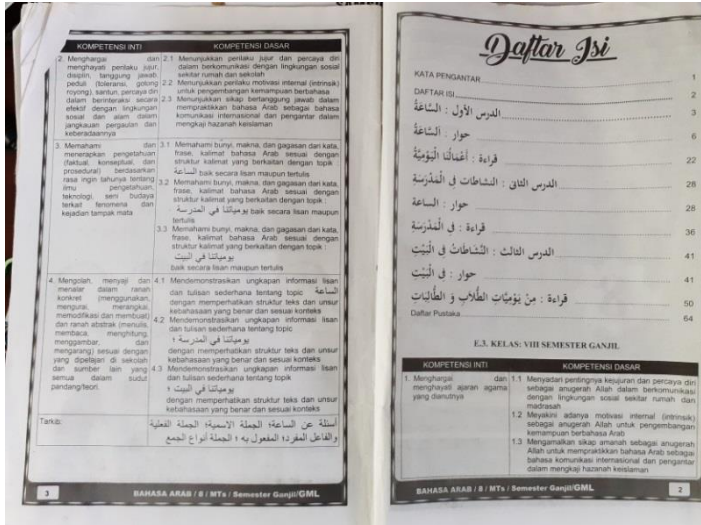 KOMPETENSI INTI KOMPETENSI DASAR
2. Menghargai dan menghayati perilaku jujur, disiplin, tanggung jawab, peduli (toleransi, gotong royong), santun, percaya diri dalam berinteraksi secara efektif dengan lingkungan sosial dan alam dalam jangkauan pergaulan dan keberadaannya
2.1 Menunjukkan perilaku jujur dan percaya diri
dalam berkomunikasi dengan lingkungan sosial
sekitar rumah dan sekolah
2.2 Menunjukkan perilaku motivasi internal (intrinsik)
untuk pengembangan kemampuan berbahasa
2.3 Menunjukkan sikap bertanggung jawab dalam
mempraktikkan bahasa Arab sebagai bahasa
komunikasi internasional dan pengantar dalam
mengkaji hazanah keislaman
3. Memahami dan
menerapkan pengetahuan
(faktual, konseptual, dan
prosedural) berdasarkan
rasa ingin tahunya tentang
ilmu pengetahuan,
teknologi, seni budaya
terkait fenomena dan
kejadian tampak mata
3.1 Memahami bunyi, makna, dan gagasan dari kata,
frase, kalimat bahasa Arab sesuai dengan
struktur kalimat yang berkaitan dengan topik :
الساعة baik secara lisan maupun tertulis
3.2 Memahami bunyi, makna, dan gagasan dari kata,
frase, kalimat bahasa Arab sesuai dengan
struktur kalimat yang berkaitan dengan topik :
يومياتنا في المدرسة baik secara lisan maupun
tertulis
3.3 Memahami bunyi, makna, dan gagasan dari kata,
frase, kalimat bahasa Arab sesuai dengan
struktur kalimat yang berkaitan dengan topik :
يومياتنا في البيت
baik secara lisan maupun tertulis
4. Mengolah, menyaji dan
menalar dalam ranah
konkret (menggunakan,
mengurai, merangkai,
memodifikasi dan membuat)
dan ranah abstrak (menulis,
membaca, menghitung,
menggambar, dan
mengarang) sesuai dengan
yang dipelajari di sekolah
dan sumber lain yang
sama dalam sudut
pandang/teori.
4.1 Mendemonstrasikan ungkapan informasi lisan
dan tulisan sederhana tentang topik الساعة
dengan memperhatikan struktur teks dan unsur
kebahasaan yang benar dan sesuai konteks
4.2 Mendemonstrasikan ungkapan informasi lisan
dan tulisan sederhana tentang topic
يومياتنا في المدرسة ؛
dengan memperhatikan struktur teks dan unsur
kebahasaan yang benar dan sesuai konteks
4.3 Mendemonstrasikan ungkapan informasi lisan
dan tulisan sederhana tentang topik
يومياتنا في البيت ؛
dengan memperhatikan struktur teks dan unsur
kebahasaan yang benar dan sesuai konteks
Tarkib:
أسئلة عن الساعة؛ الجملة الاسمية؛ الجملة الفعلية
والفاعل المفرد؛ المفعول به ؛ الجملة أنواع الجمع
3 BAHASA ARAB / 8 / MTs / Semester Ganjil/GML
Daftar Isi
KATA PENGANTAR 1
DAFTAR ISI 2
الدرس الأول : السَّاعَةُ 3
حوار : اَلسَّاعَةُ 6
قراءة : أَعْمَالُنَا الْيَوْمِيَّةُ 22
الدرس الثاني : النشاطات فِي الْمَدْرَسَةِ 28
حوار : الساعة 28
قراءة : فِي الْمَدْرَسَةِ 36
الدرس الثالث : النَّشَاطَاتُ فِي الْبَيْتِ 41
حوار : فِي الْبَيْتِ 41
قراءة : مِنْ يَوْمِيَّاتِ الطُّلَّابِ وَ الطَّالِبَاتِ 50
Daftar Pustaka 64
E.3. KELAS: VIII SEMESTER GANJIL
KOMPETENSI INTI KOMPETENSI DASAR
1. Menghargai dan
menghayati ajaran agama
yang dianutnya
1.1 Menyadari pentingnya kejujuran dan percaya diri
sebagai anugerah Allah dalam berkomunikasi
dengan lingkungan sosial sekitar rumah dan
madrasah
1.2 Meyakini adanya motivasi internal (intrinsik)
sebagai anugerah Allah untuk pengembangan
kemampuan berbahasa Arab
1.3 Mengamalkan sikap amanah sebagai anugerah
Allah untuk mempraktikkan bahasa Arab sebagai
bahasa komunikasi internasional dan pengantar
dalam mengkaji hazanah keislaman
BAHASA ARAB / 8 / MTs / Semester Ganjil/GML 2